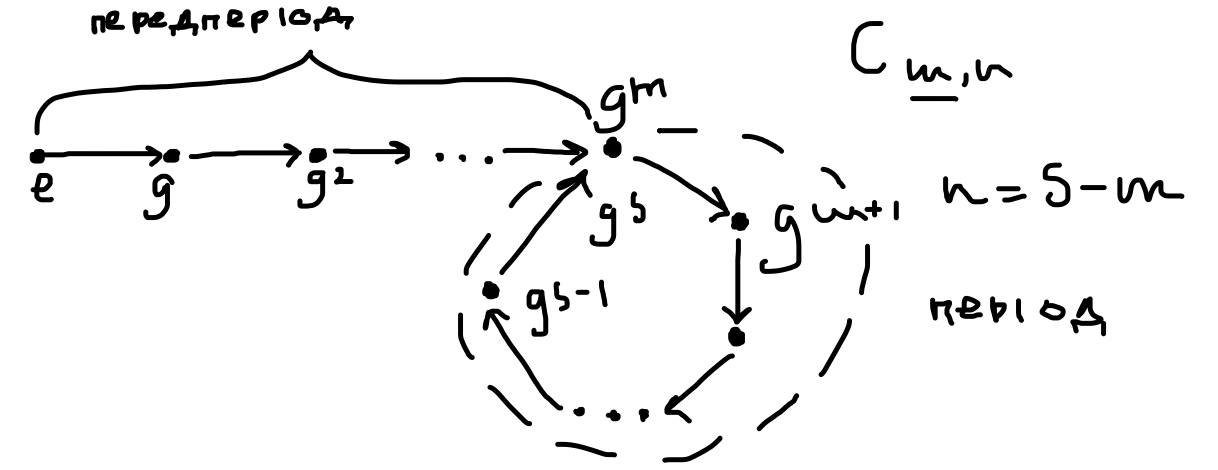 передперіод
C m,n
g^m
e g g^2 ... g^s g^m+1
n = s - m
g^s-1
період
...